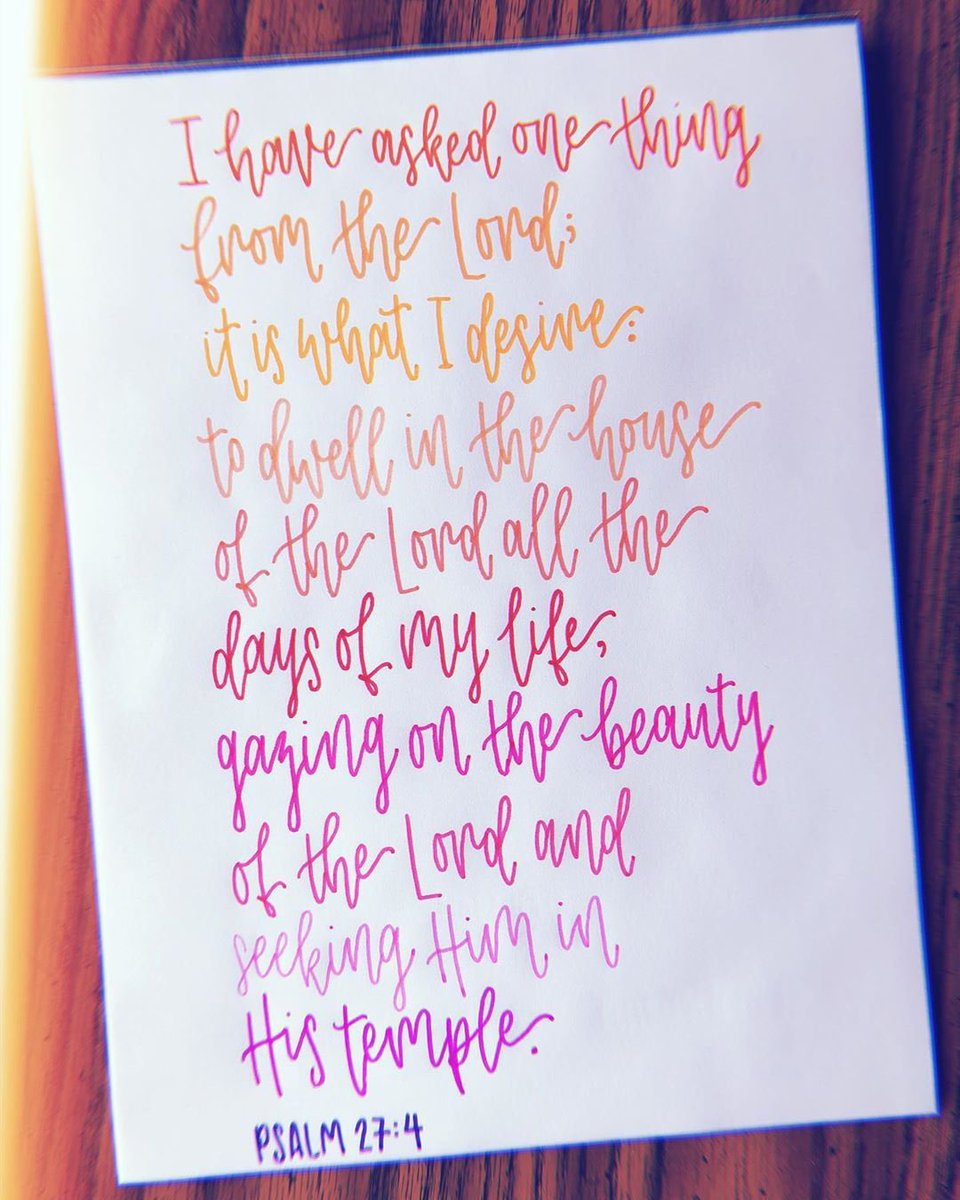 I have asked one thing
from the Lord;
it is what I desire:
to dwell in the house
of the Lord all the
days of my life,
gazing on the beauty
of the Lord and
seeking Him in
His temple.
PSALM 27:4